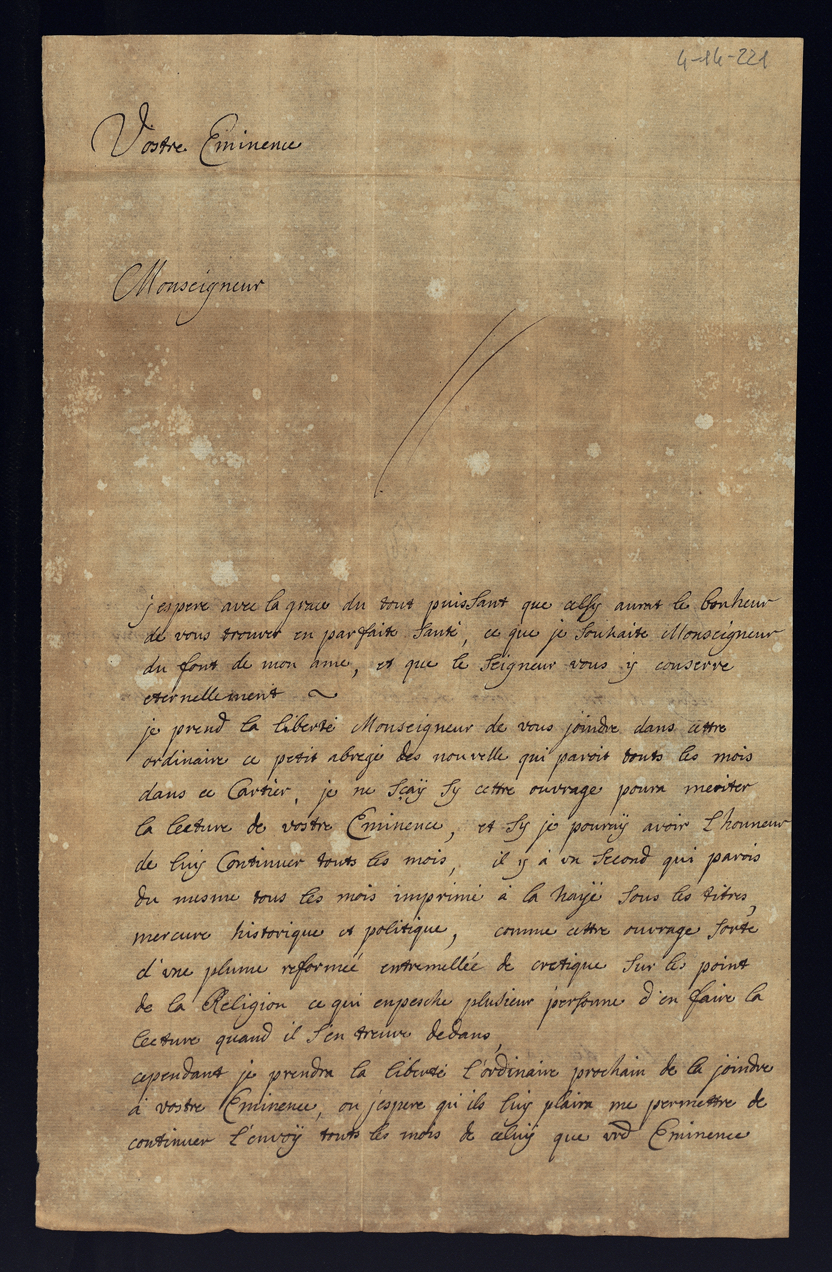 4-14-221
Vostre Eminence
Monseigneur
j'espere avec la grace du tout puissant que celsy aurat le bonheur
de vous trouver en parfaite santé, ce que je souhaite Monseigneur
du font de mon ame, et que le seigneur vous y conserve
eternellement ~
je prend la liberté Monseigneur de vous joindre dans cettre
ordinaire ce petit abregé des nouvelle qui paroit touts les mois
dans ce Cartier, je ne sçaÿ sy cettre ouvrage poura meriter
la lecture de vostre Eminence, et sy je pouraÿ avoir l'honneur
de luy Continuer touts les mois, il y à un second qui parois
du mesme tous les mois imprimé à la haÿe sous les titres,
mercure historique et politique, comme cettre ouvrage sorte
d'vne plume reformeé entremelleé de cretique sur les point
de la Religion ce qui enpesche plusieur personne d'en faire la
lecture quand il s'en treuve dedans,
cependant je prendra la liberté l'ordinaire prochain de la joindre
à vostre Eminence, ou j'espere qu'ils luy plaira me permettre de
continuer l'envoÿ touts les mois de celuÿ que Eminence